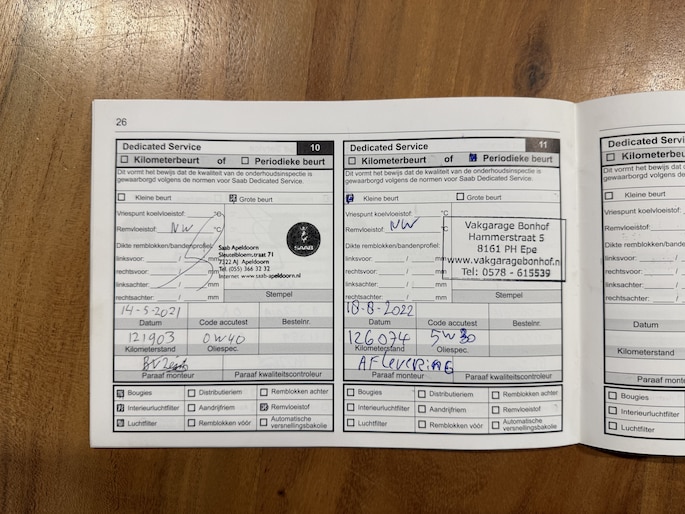 26
Dedicated Service 10
Kilometerbeurt of Periodieke beurt
Dit vormt het bewijs dat de kwaliteit van de onderhoudsinspectie is
gewaarborgd volgens de normen voor Saab Dedicated Service.
Kleine beurt Grote beurt
Vriespunt koelvloeistof: °C
Remvloeistof: NW °C
Dikte remblokken/bandenprofiel:
linksvoor: / mm
rechtsvoor: / mm
linksachter: / mm
rechtsachter: / mm
SAAB
Saab Apeldoorn
Sleutelbloemstraat 71
7322 AJ Apeldoorn
Tel. (055) 366 32 32
Internet www.saab-apeldoorn.nl
Stempel
14-5-2021
Datum Code accutest Bestelnr.
121903 0W40
Kilometerstand Oliespec.
Paraaf monteur Paraaf kwaliteitscontroleur
Bougies Distributieriem Remblokken achter
Interieurluchtfilter Aandrijfriem Remvloeistof
Luchtfilter Remblokken vóór Automatische
versnellingsbakolie
Dedicated Service 11
Kilometerbeurt of Periodieke beurt
Dit vormt het bewijs dat de kwaliteit van de onderhoudsinspectie is
gewaarborgd volgens de normen voor Saab Dedicated Service.
Kleine beurt Grote beurt
Vriespunt koelvloeistof: °C
Remvloeistof: NW °C
Dikte remblokken/bandenprofiel:
linksvoor: / mm
rechtsvoor: / mm
linksachter: / mm
rechtsachter: / mm
Vakgarage Bonhof
Hammerstraat 5
8161 PH Epe
www.vakgaragebonhof.nl
Tel: 0578 - 615539
Stempel
18-8-2022
Datum Code accutest Bestelnr.
126074 5W30
Kilometerstand Oliespec.
AFlevering
Paraaf monteur Paraaf kwaliteitscontroleur
Bougies Distributieriem Remblokken achter
Interieurluchtfilter Aandrijfriem Remvloeistof
Luchtfilter Remblokken vóór Automatische
versnellingsbakolie
Dedicated Se
Kilometerbeu
Dit vormt het bewijs
gewaarborgd volgens
Kleine beurt
Vriespunt koelvloeistof:
Remvloeistof:
Dikte remblokken/band
linksvoor:
rechtsvoor:
linksachter:
rechtsachter:
Datum
Kilometerstand
Paraaf mont
Bougies
Interieurluchtfilter
Luchtfilter